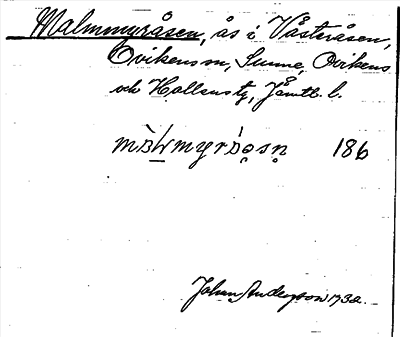 Malmmyråsen, ås i Våsteråsen,
Ovikens sn, Sunne, Ovikens
och Hallens tg, Jämtl. l.
186
Johan Anderson 1932.